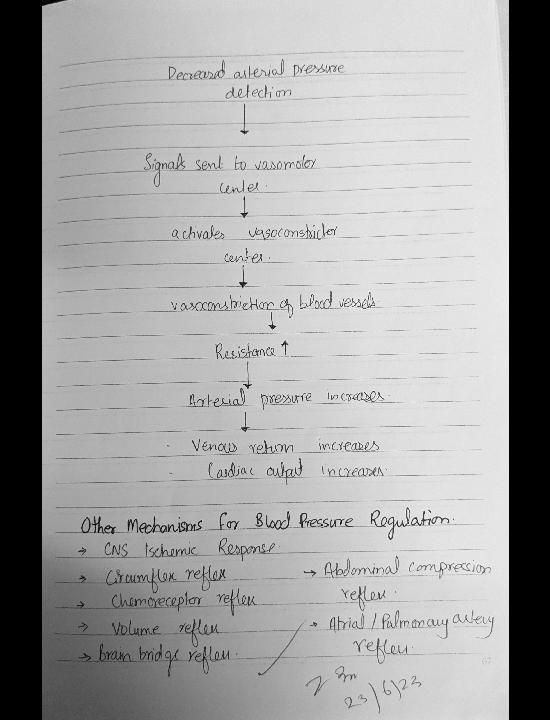 Decreased arterial pressure
detection
↓
Signals sent to vasomotor
center.
↓
activates vasoconstrictor
center.
↓
vasoconstriction of blood vessels
↓
Resistance ↑
↓
Arterial pressure increases.
↓
- Venous return increases
- Cardiac output increases.
Other Mechanisms for Blood Pressure Regulation.
→ CNS Ischemic Response.
→ Circumflex reflex
→ Chemoreceptor reflex
→ Volume reflex
→ brain bridge reflex.
→ Abdominal compression
reflex.
→ Atrial / Pulmonary artery
reflex.
23/6/23